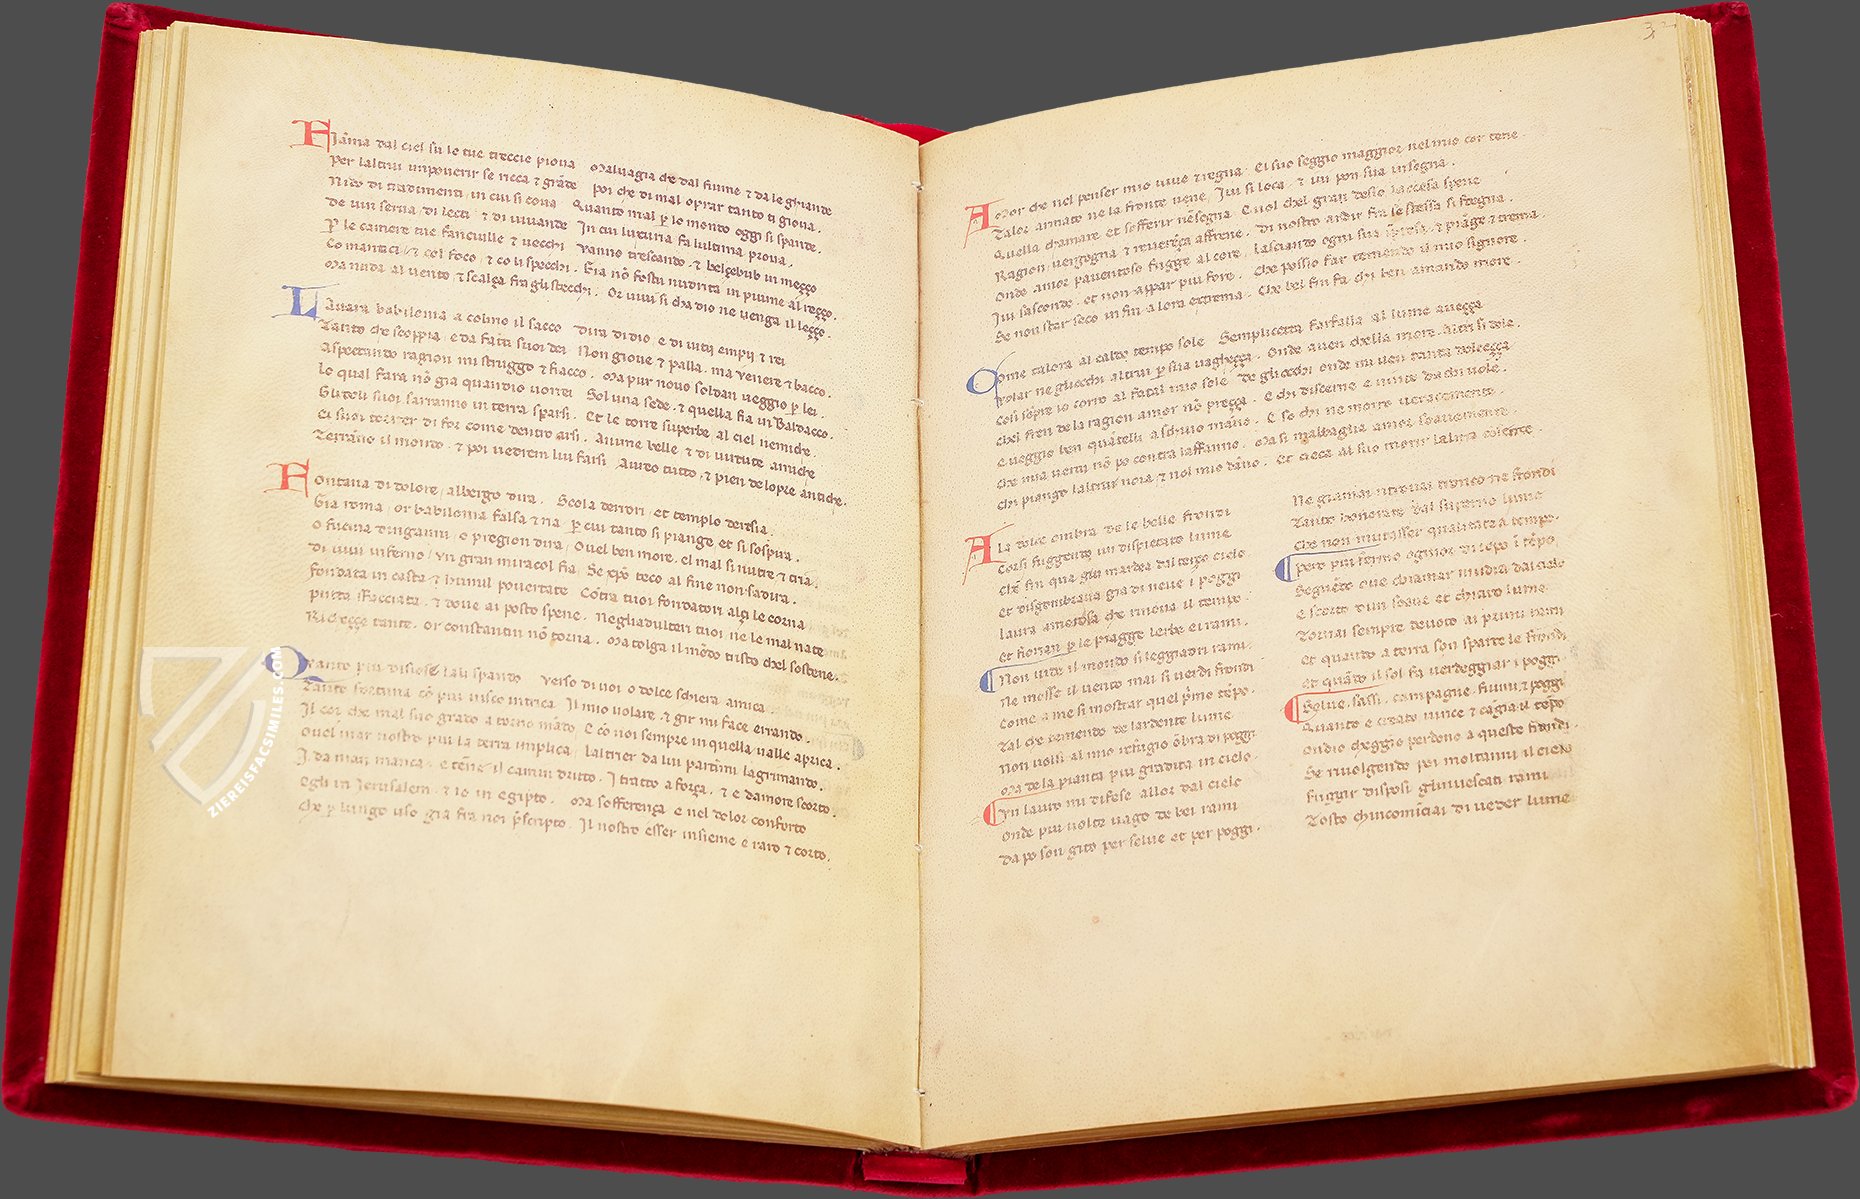 Fiãma dal ciel su le tue treccie pioua Maluagia che dal fiume & da le ghiande
Per laltrui impouerir se ricca & grãde poi che di mal oprar tanto ti gioua.
Nido di tradimenti, in cui si coua Quanto mal p lo mondo oggi si spande.
De uin serua, di lecti & di uiuande In cui luxuria fa lultima proua.
P le camere tue fanciulle & uecchi Vanno trescando, & belçebub in meçço
Co mantici, & col foco, & co li specchi. Gia nõ fostu nudrita in piume al reçço.
Ma nuda al uento, & scalça fra gli stecchi. Or uiui si cha dio ne uenga il leçço.
Lauara babilonia a colmo il sacco Dira di dio, e di uitij empij & rei
Tanto che scoppia, e da facti suoi dei Non gioue & palla, ma venere & bacco.
Aspectando ragion mi struggo & fiacco. Ma pur nouo soldan ueggio p lei.
Lo qual fara nõ gia quandio uorrei Sol una sede, & quella fia in Baldacco.
Glidoli suoi sarranno in terra sparsi. Et le torre superbe al ciel nemiche.
Ei suoi torrer di for come dentro arsi. Anime belle, & di uirtute amiche
Terrãno il mondo, & poi uedrem lui farsi Aureo tutto, & pien de lopre antiche.
Fontana di dolore, albergo dira. Scola derrori, et templo deresia.
Gia roma, or babilonia falsa & ria p cui tanto si piange, et si sospira.
O fucina dinganni, o pregion dira, Ouel ben more, el mal si nutre & cria,
Di uiui inferno, Vn gran miracol fia Se xpõ teco al fine non sadira.
Fondata in casta & humil pouertate Cõtra tuoi fondatori alçi le corna
putta sfacciata, & doue ai posto spene. Negliadulteri tuoi ne le mal nate
Richeççe tante. Or constantin nõ torna. Ma tolga il mõdo tristo chel sostene.
Quanto piu disiose lali spando Verso di uoi o dolce schiera amica
Tanto fortuna cõ piu uisco intrica Il mio uolare, & gir mi face errando.
Il cor che mal suo grato a torno mãdo E cõ uoi sempre in quella ualle aprica.
Ouel mar nostro piu la terra implica, laltrier da lui partimi lagrimando.
I da man manca, e tẽne il camin dritto. I tracto a força, & e damore scorto.
Egli in Jerusalem, & io in egipto. Ma sofferença e nel dolor conforto
Che p lungo uso gia fra noi pscripto. Il nostro esser insieme e raro & corto.
ZIEREISFACSIMILES.COM
32
Amor che nel penser mio uiue & regna. El suo seggio maggior nel mio cor tene.
Talor armato ne la fronte uene, Iui si loca, & iui pon sua insegna.
Quella chamare et sofferir nesegna. E uol chel gran desio laccesa spene
Ragion, uergogna & reuerẽça affrene. Di nostro ardir fra se stessa si sdegna.
Onde amor pauentoso fugge al core, Lasciando ogni sua impresa, & piãge & trema,
Iui sasconde, et non appar piu fore. Che possio far temendo il mio signore.
Se non star seco in fin a lora extrema. Che bel fin fa chi ben amando more.
Come talora al caldo tempo sole Semplicetta farfalla al lume aueçça
Volar ne gliocchi altrui p sua uagheççа. Onde auen chella more, altri si dole.
Cosi sempre io corro al fatal mio sole De gliocchi onde mi uen tanta dolceçça
Chel fren de la ragion amor nõ preçça. E chi discerne e uinto da chi uole.
E ueggio ben quãtelli a schiuo mãno. E so chi ne morro ueracemente.
Che mia uertu nõ po contra laffanno. Ma si mabbaglia amor soauemente.
Chi piango laltrui noia, & nol mio dãno. Et cieca al suo morir lalma consente.
A la dolce ombra de le belle frondi
Corsi fuggendo un dispietato lume
Chẽ fin qua giu mardea dal terço cielo.
Et disgombraua gia di neue i poggi
Laura amorosa che rinoua il tempo.
Et fiorian p le piagge lerbe ei rami.
Non uide il mondo si leggiadri rami.
Ne mosse il uento mai si uerdi frondi
Come a me si mostrar quel pmo tẽpo.
Tal che temendo de lardente lume
Non uolsi al mio refugio õbra di poggi
Ma de la pianta piu gradita in cielo.
Vn lauro mi difese allor dal cielo
Onde piu uolte uago de bei rami
Da po son gito per selue et per poggi.
Ne giamai ritrouai tronco ne frondi
Tanto honorate dal superno lume
Che non mutasser qualitate a tempo.
Pero piu fermo ognor di tẽpo ĩ tẽpo,
Seguẽdo oue chiamar mudia dal cielo
E scorto dun soaue et chiaro lume.
Tornai sempre deuoto ai primi rami
Et quando a terra son sparte le frondi
Et quãdo il sol fa uerdeggiar i poggi.
Selue, sassi, campagne, fiumi, & poggi
Quanto e creato uince & cãgia il tẽpo
Ondio cheggio perdono a queste frondi.
Se riuolgendo poi moltanni il cielo
Fuggir disposi glinuescati rami
Tosto chincomĩciai di ueder lume